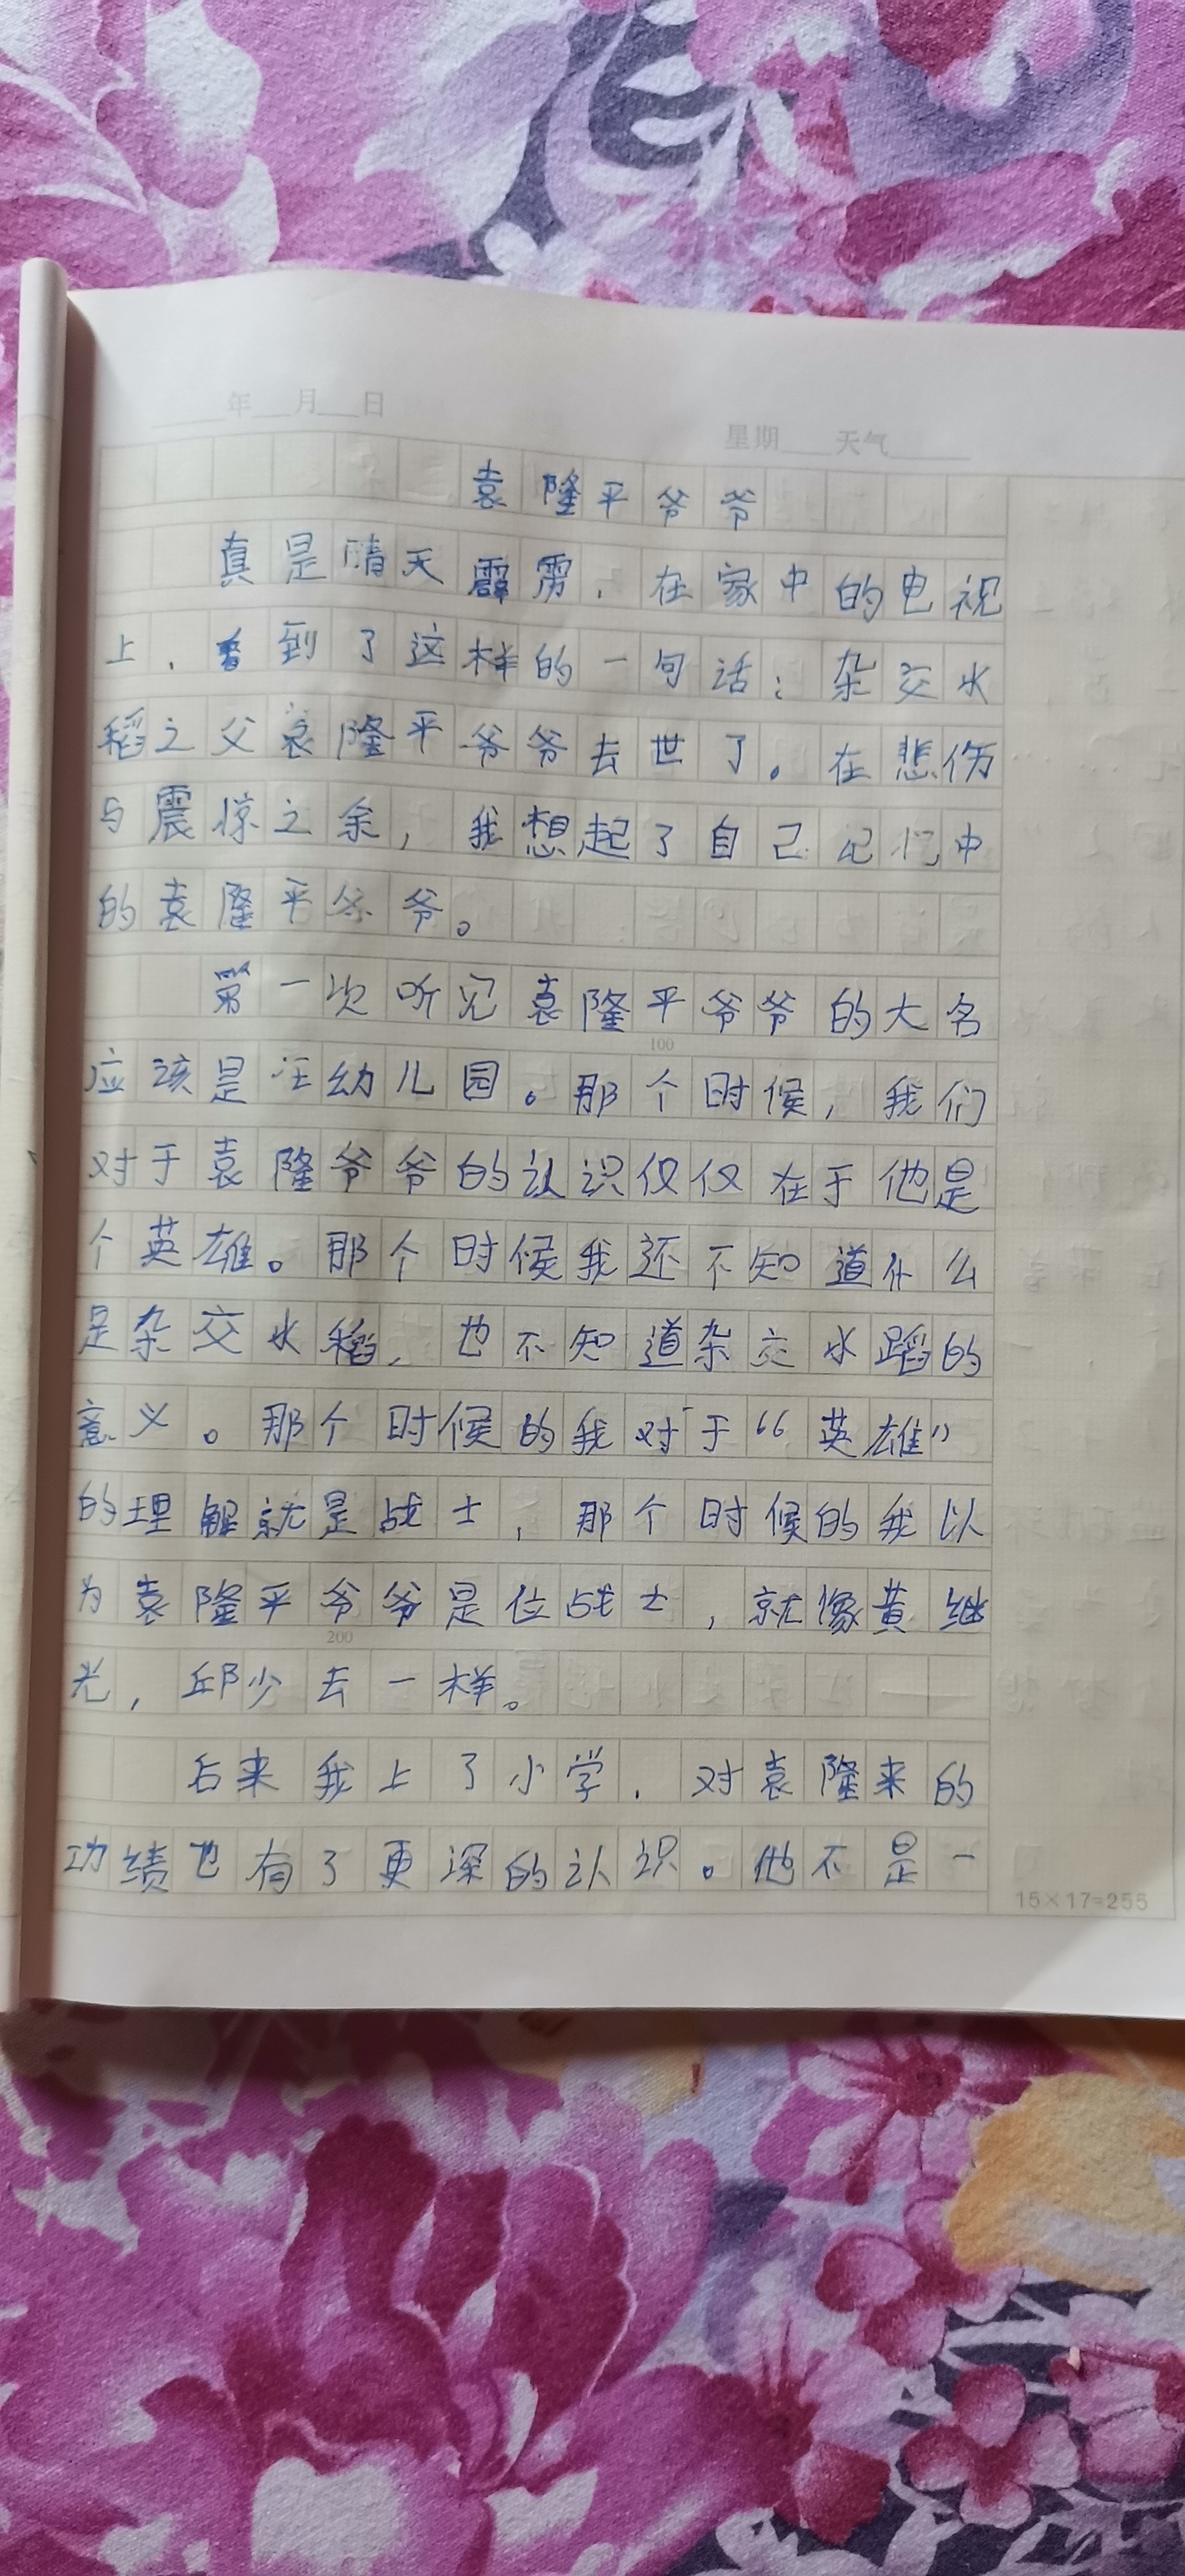 年 月 日
星期 天气
袁隆平爷爷
真是晴天霹雳，在家中的电视
上，看到了这样的一句话：杂交水
稻之父袁隆平爷爷去世了。在悲伤
与震惊之余，我想起了自己记忆中
的袁隆平爷爷。
第一次听见袁隆平爷爷的大名
100
应该是在幼儿园。那个时候，我们
对于袁隆爷爷的认识仅仅在于他是
个英雄。那个时候我还不知道什么
是杂交水稻，也不知道杂交水蹈的
意义。那个时候的我对于“英雄”
的理解就是战士，那个时候的我以
为袁隆平爷爷是位战士，就像黄继
200
光，邱少去一样。
后来我上了小学，对袁隆来的
功绩也有了更深的认识。他不是一
15×17=255